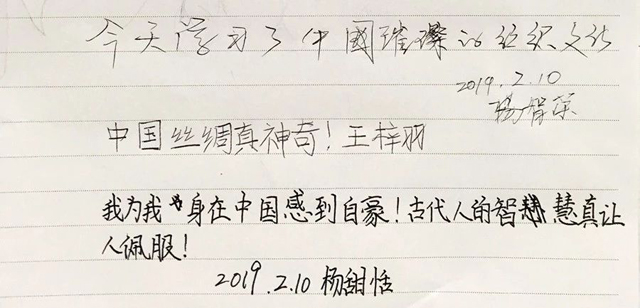 今天学习了中國璀璨的纺织文化
2019.2.10
杨智荣
中国丝绸真神奇！王梓羽
我为我身在中国感到自豪！古代人的智慧真让
人佩服！
2019.2.10 杨甜恬